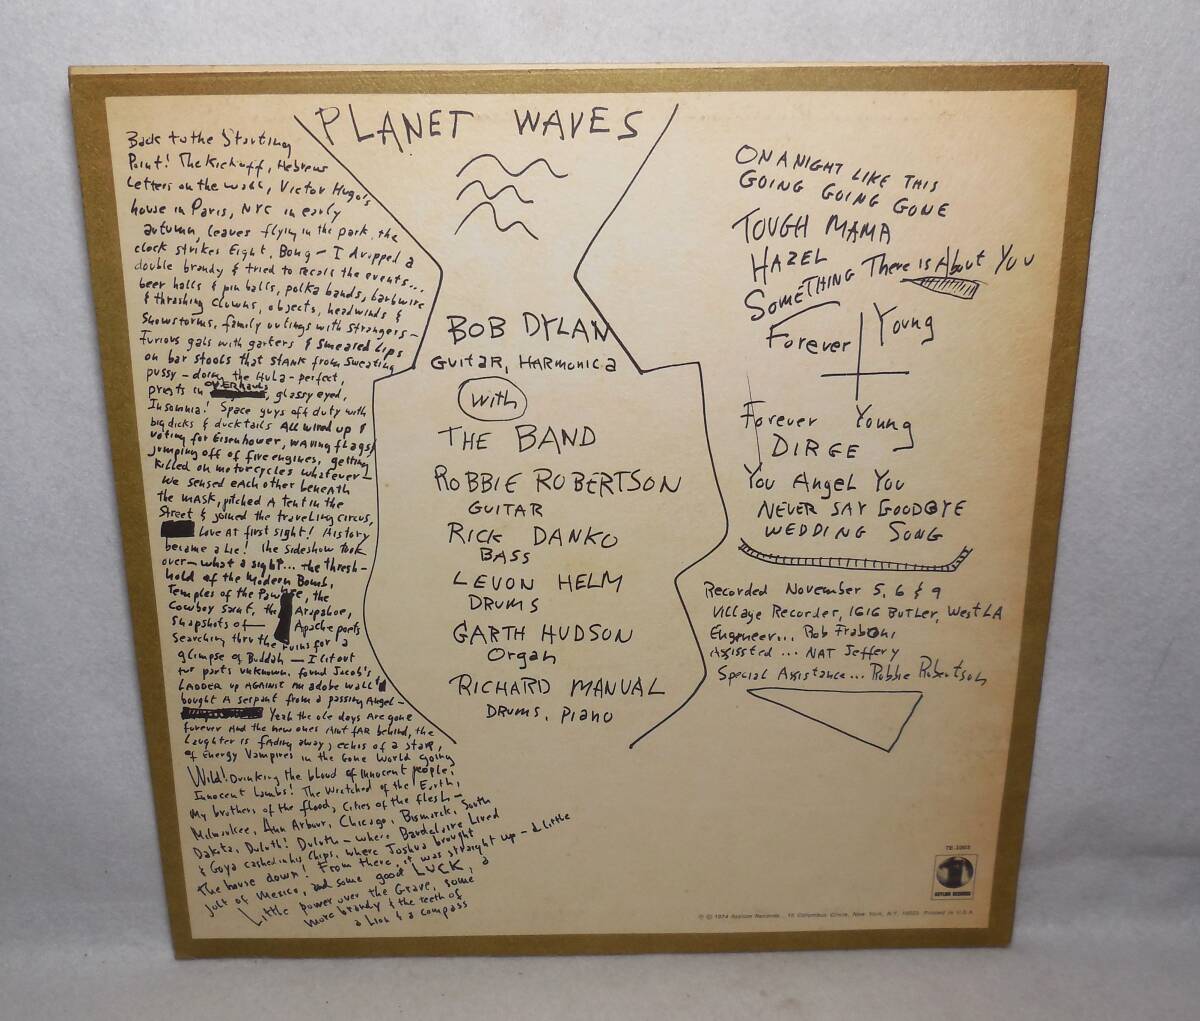 PLANET WAVES
Back to the Starting
Point! The Kickoff, Hebrew
Letters on the wall, Victor Hugo's
house in Paris, NYC in early
autumn, leaves flying in the park, the
clock strikes Eight, Bong - I dropped a
double brandy & tried to recall the events...
beer halls & pin balls, polka bands, barbwire
& thrashing clowns, objects, headwinds &
Snowstorms, family outings with strangers -
Furious gals with garters & smeared Lips
on bar stools that stank from sweating
pussy - doing the Hula - perfect,
priests in OVERHAULS, glassy eyed,
Insomnia! Space guys off duty with
big dicks & ducktails All wired up &
voting for Eisenhower, waving flags &
jumping off of fire engines, getting
killed on motorcycles whatever -
We sensed each other beneath
the mask, pitched A tent in the
Street & joined the traveling circus,
Love At first sight! History
became a Lie! The sideshow took
over - what a sight... the thresh-
hold of the Modern Bomb,
Temples of the Pawnee, the
Cowboy saint, the Arapahoe,
Snapshots of - Apache poets
Searching thru the ruins for a
glimpse of Buddah - I lit out
for parts unknown, found Jacob's
LADDER up AGAINST an adobe wall &
bought A serpent from a passing Angel -
Yeah the ole days Are gone
forever And the new ones Aint fAR behind, the
Laughter is fAding away, echos of a staR,
of Energy Vampires in the Gone World going
Wild! Drinking the blood of innocent people,
Innocent Lambs! The Wretched of the Earth,
My brothers of the flood, Cities of the flesh -
Milwaukee, Ann Arbour, Chicago, Bismarck, South
Dakota, Duluth! Duluth - where Baudelaire Lived
& Goya cashed in his Chips, where Joshua brought
the house down! From there, it was straight up - a little
jolt of Mexico, and some good LUCK, a
Little power over the Grave, some
more brandy & the teeth of
a Lion & a compass
BOB DYLAN
GUITAR, HARMONICA
with
THE BAND
ROBBIE ROBERTSON
GUITAR
RICK DANKO
BASS
LEVON HELM
DRUMS
GARTH HUDSON
Organ
RICHARD MANUAL
DRUMS, PIANO
ON A NIGHT LIKE THIS
GOING GOING GONE
TOUGH MAMA
HAZEL
SOMETHING There is About You
Forever Young
Forever Young
DIRGE
You Angel You
NEVER SAY GOODBYE
WEDDING SONG
Recorded November 5, 6 & 9
Village Recorder, 1616 Butler, West LA
Engeneer... Rob Fraboni
Assissted... NAT Jeffery
Special Assistance... Robbie Robertson
7E-1003
ASYLUM RECORDS
℗ © 1974 Asylum Records, 15 Columbus Circle, New York, N.Y. 10023. Printed in U.S.A.